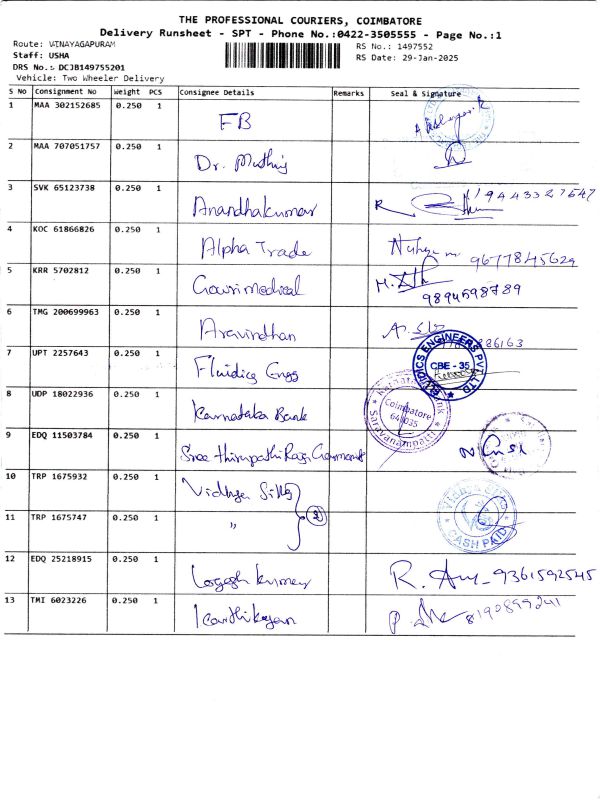 THE PROFESSIONAL COURIERS, COIMBATORE
Delivery Runsheet - SPT - Phone No.:0422-3505555 - Page No.:1
Route: VINAYAGAPURAM
RS No.: 1497552
Staff: USHA
RS Date: 29-Jan-2025
DRS No.: DCJB149755201
Vehicle: Two Wheeler Delivery
S No Consignment No Weight PCS Consignee Details Remarks Seal & Signature
1 MAA 302152685 0.250 1 FB
2 MAA 707051757 1 0.250 1 Dr.
3 SVK 65123738 0.250 1 Anandhakumar 9443327647
4 KOC 61866826 0.250 1 Alpha Trade 9677845629
5 KRR 5702812 0.250 1 Gowri medical 9894598789
6 TMG 200699963 0.250 1 Aravindhan 86163
7 UPT 2257643 0.250 1 Fluidics Engg FLUIDICS ENGINEERS PVT LTD CBE - 35
8 UDP 18022936 0.250 1 Karnataka Bank Karnataka Bank Coimbatore 641035 Saravanampatti
9 EDQ 11503784 0.250 1 Sree Thirupathi Raja
10 TRP 1675932 0.250 1 Vidhya Silks
11 TRP 1675747 0.250 1 " 2 CASH PAID
12 EDQ 25218915 0.250 1 Logesh kumar R. 9361592545
13 TMI 6023226 0.250 1 Karthikeyan P. 8190899241